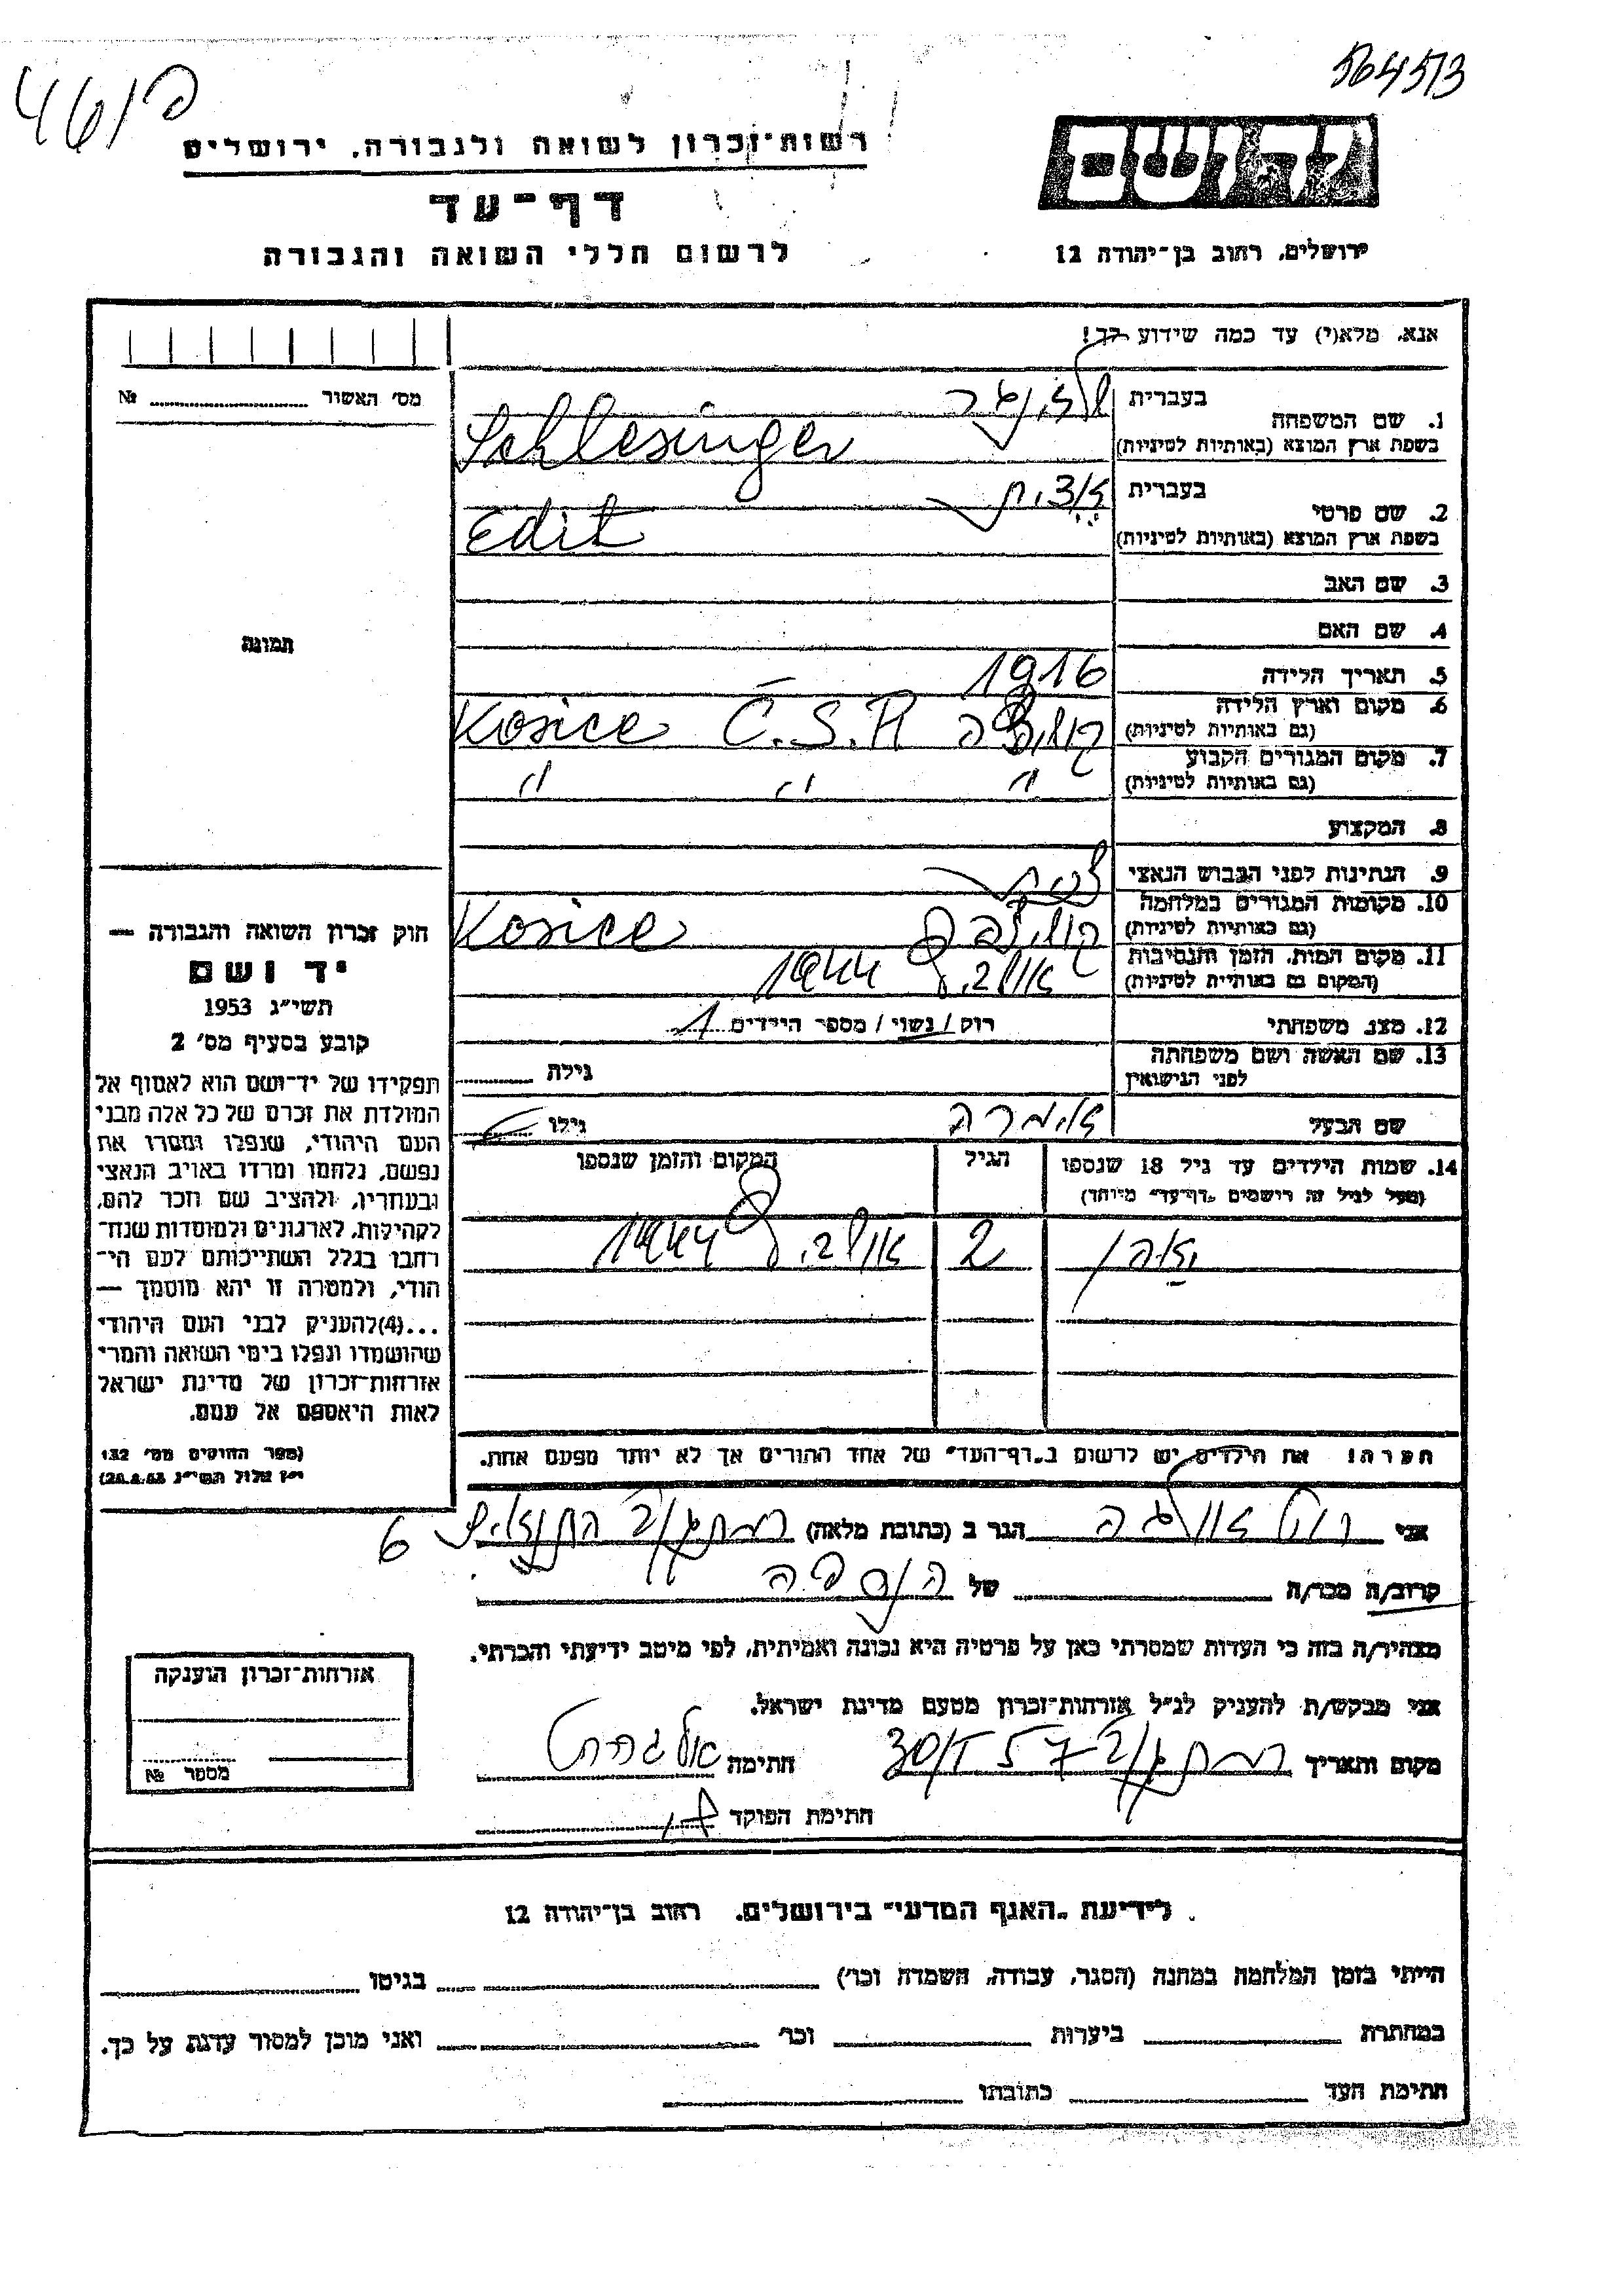 564513
461פ
רשות־זכרון לשואה ולגבורה, ירושלים
דף־עד
לרשום חללי השואה והגבורה
יד ושם
ירושלים, רחוב בן־יהודה 12
אנא, מלא(י) עד כמה שידוע לך!
מס׳ האשור № ..........
תמונה
1. שם המשפחה
בעברית שלזינגר
בשפת ארץ המוצא (באותיות לטיניות) Schlesinger
2. שם פרטי
בעברית אדית
בשפת ארץ המוצא (באותיות לטיניות) Edit
3. שם האב
4. שם האם
5. תאריך הלידה 1916
6. מקום וארץ הלידה
(גם באותיות לטיניות) Kosice Č.S.R
7. מקום המגורים הקבוע
(גם באותיות לטיניות) " " "
8. המקצוע
9. הנתינות לפני הכבוש הנאצי
10. מקומות המגורים במלחמה
(גם באותיות לטיניות) Kosice
11. מקום המות, הזמן והנסיבות
(המקום גם באותיות לטיניות) אושביץ 1944
12. מצב משפחתי רווק / נשוי / מספר הילדים 1
13. שם האשה ושם משפחתה
לפני הנישואין
גילה
שם הבעל
גילו
14. שמות הילדים עד גיל 18 שנספו
(מעל לגיל זה רושמים „דף־עד״ מיוחד)
הגיל
המקום והזמן שנספו
2 אושביץ 1944
הערה! את הילדים יש לרשום ב„דף־העד״ של אחד ההורים אך לא יותר מפעם אחת.
חוק זכרון השואה והגבורה —
יד ושם
תשי״ג 1953
קובע בסעיף מס׳ 2
תפקידו של יד־ושם הוא לאסוף אל
המולדת את זכרם של כל אלה מבני
העם היהודי, שנפלו ומסרו את
נפשם, נלחמו ומרדו באויב הנאצי
ובעוזריו, ולהציב שם וזכר להם,
לקהילות, לארגונים ולמוסדות שנח־
רבו בגלל השתייכותם לעם הי־
הודי, ולמטרה זו יהא מוסמך —
...(4)להעניק לבני העם היהודי
שהושמדו ונפלו בימי השואה והמרי
אזרחות־זכרון של מדינת ישראל
לאות היאספם אל עמם.
(ספר החוקים מס׳ 132
י״ז אלול תשי״ג 28.8.53)
אני הגר ב (כתובת מלאה) רמת גן 6
קרוב/ה מכר/ה של הנספה
מצהיר/ה בזה כי העדות שמסרתי כאן על פרטיה היא נכונה ואמיתית, לפי מיטב ידיעתי והכרתי.
אני מבקש/ת להעניק לנ״ל אזרחות־זכרון מטעם מדינת ישראל.
מקום ותאריך רמת גן חתימה
חתימת הפוקד
אזרחות־זכרון הוענקה
מספר №
לידיעת „האגף המדעי״ בירושלים, רחוב בן־יהודה 12
הייתי בזמן המלחמה במחנה (הסגר, עבודה, השמדה וכו׳) בגיטו
במחתרת ביערות וכו׳ ואני מוכן למסור עדות על כך.
חתימת העד כתובתו